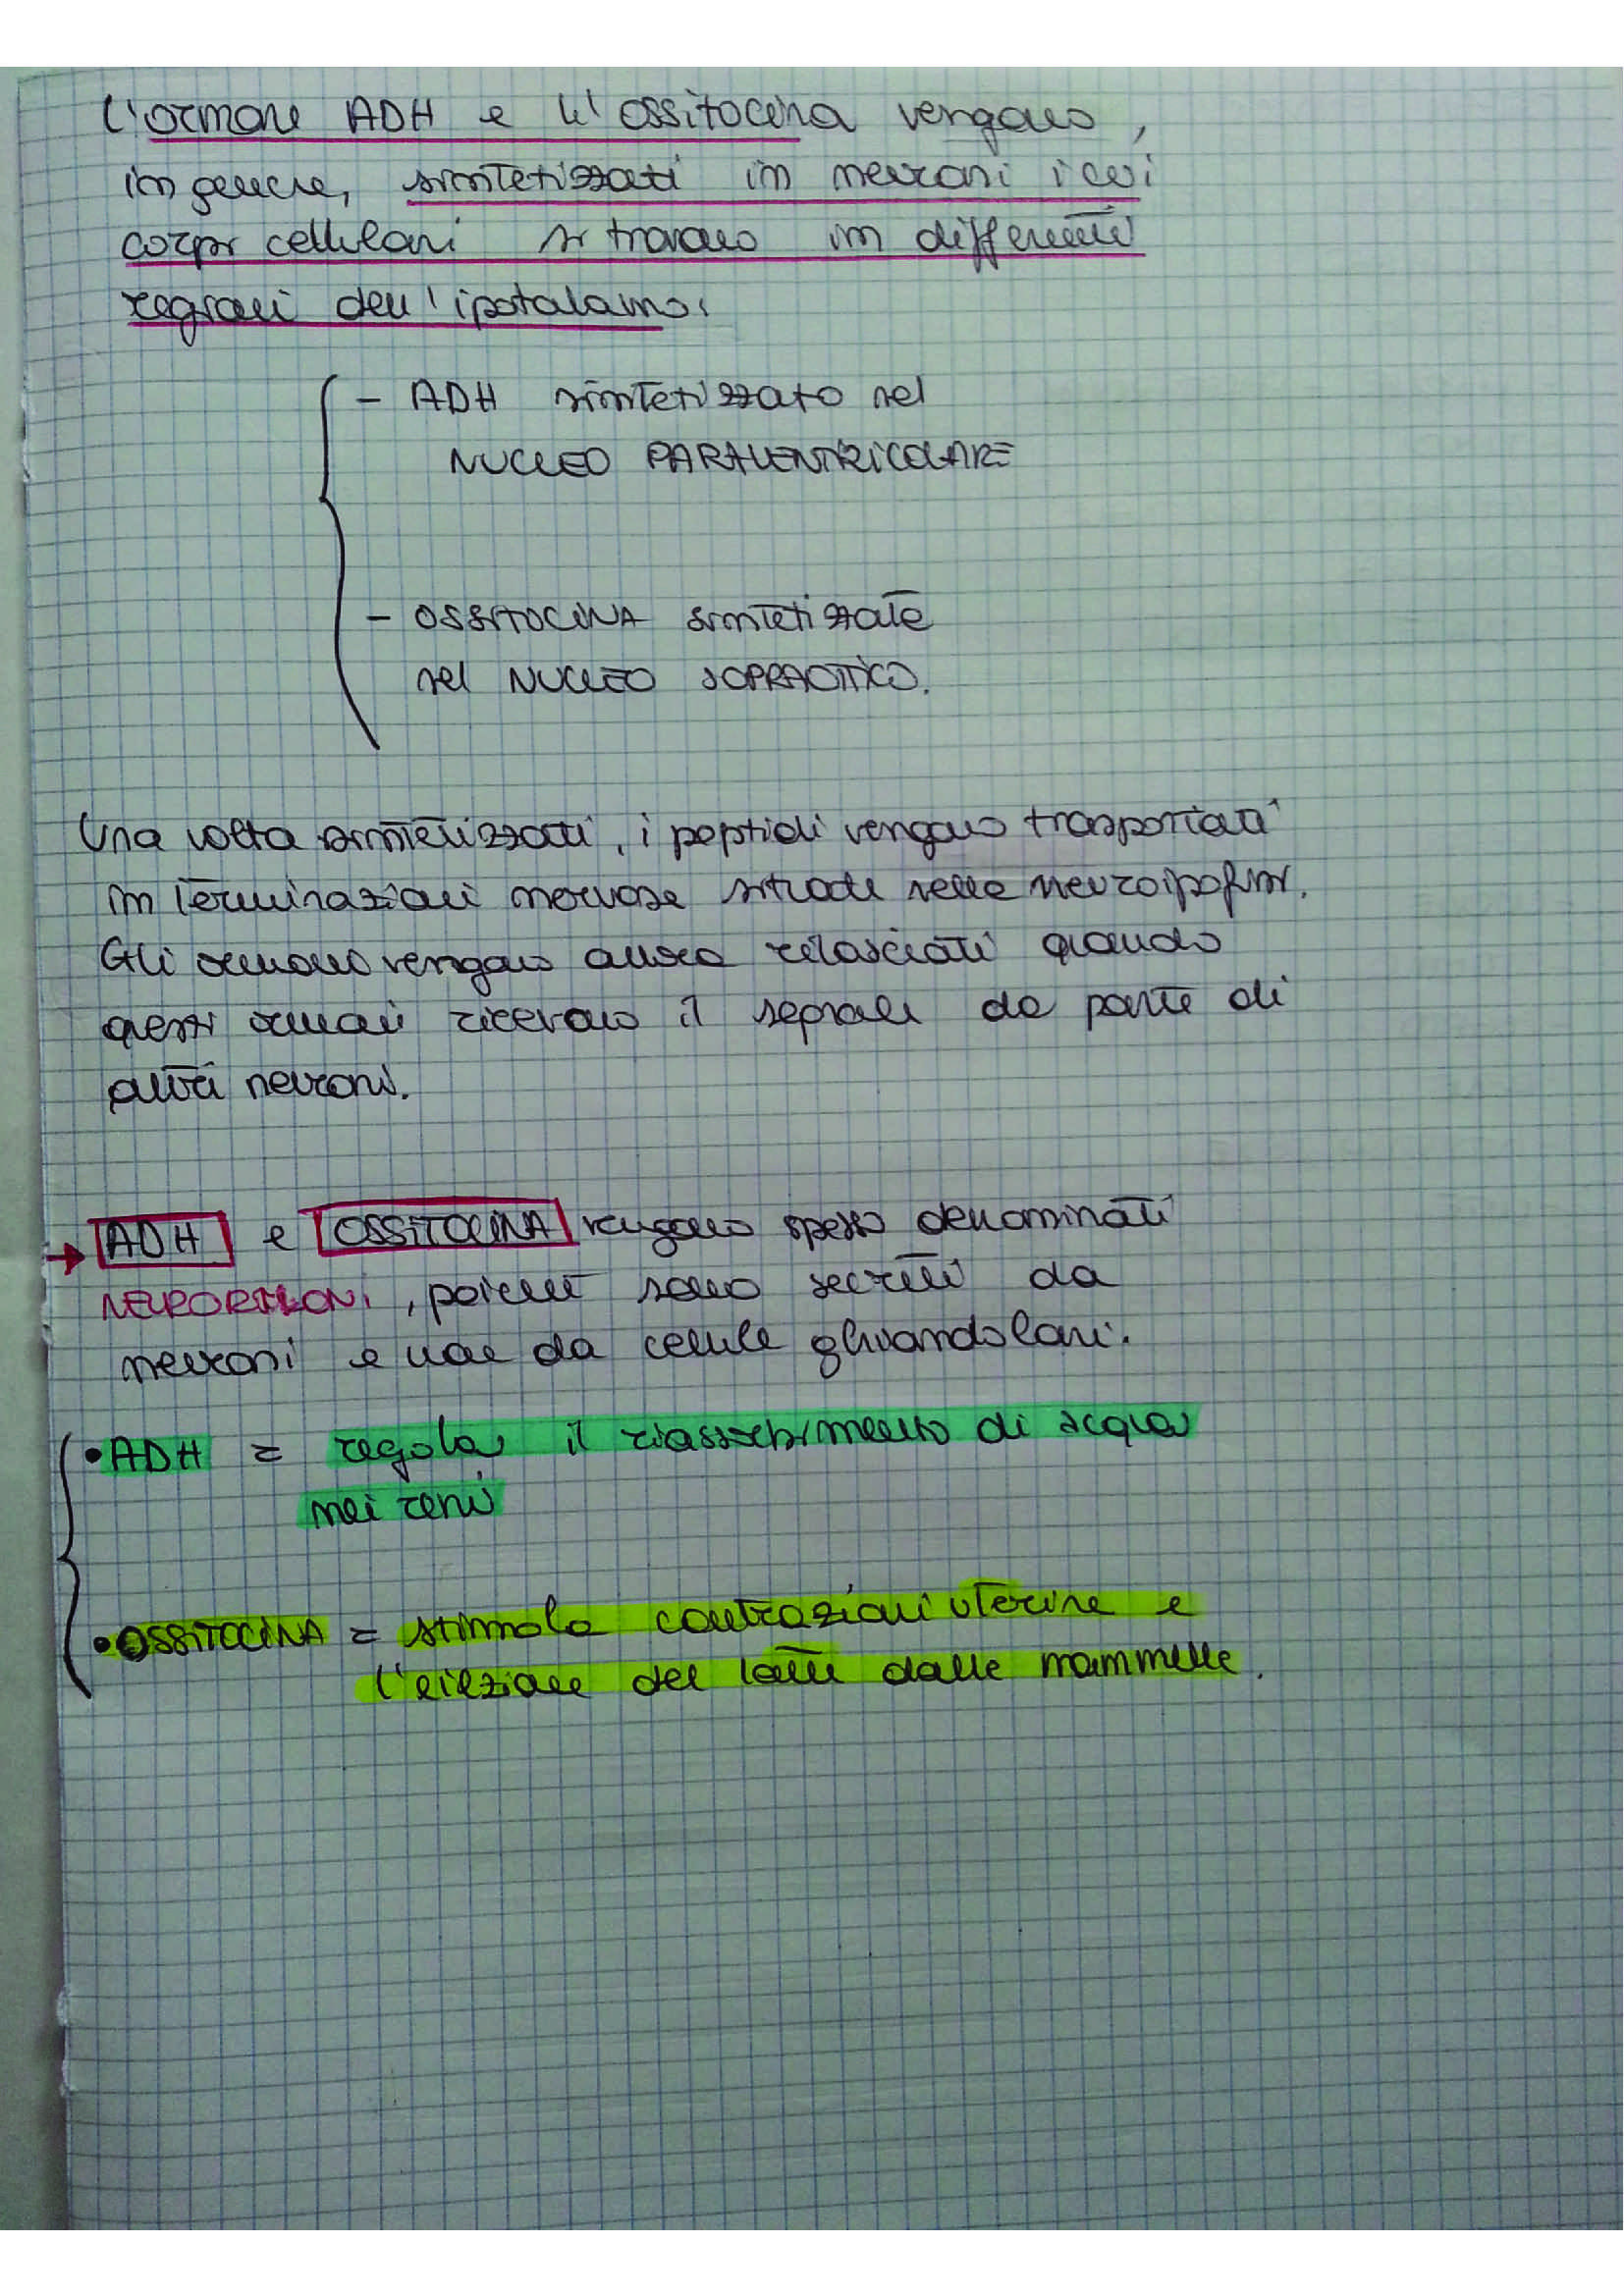 L'ormone ADH e l'ossitocina vengono,
in genere, sintetizzati in neuroni i cui
corpi cellulari si trovano in differenti
regioni dell'ipotalamo:
- ADH sintetizzato nel
NUCLEO PARAVENTRICOLARE
- OSSITOCINA sintetizzate
nel NUCLEO SOPRAOTTICO.
Una volta sintetizzati, i peptidi vengono trasportati
in terminazioni nervose situate nella neuroipofisi.
Gli ormoni vengono allora rilasciati quando
questi ormoni ricevono il segnale da parte di
altri neuroni.
→ ADH e OSSITOCINA vengono spesso denominati
NEURORMONI, poiché sono secreti da
neuroni e non da cellule ghiandolari.
• ADH = regola il riassorbimento di acqua
nei reni
• OSSITOCINA = stimola contrazioni uterine e
l'eiezione del latte dalle mammelle.